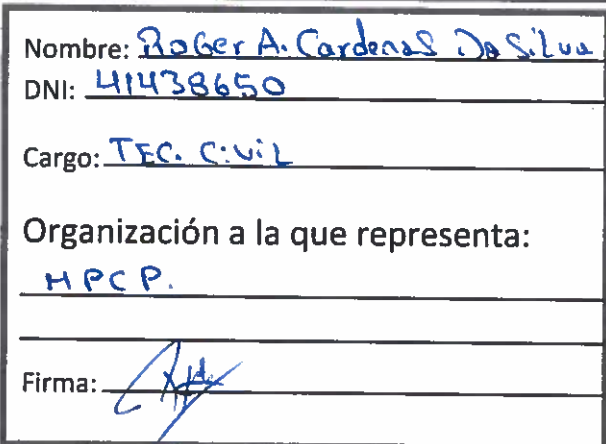 Nombre: Roger A. Cardenas Da Silva
DNI: 41438650
Cargo: TEC. CiviL
Organización a la que representa:
MPCP.
Firma: